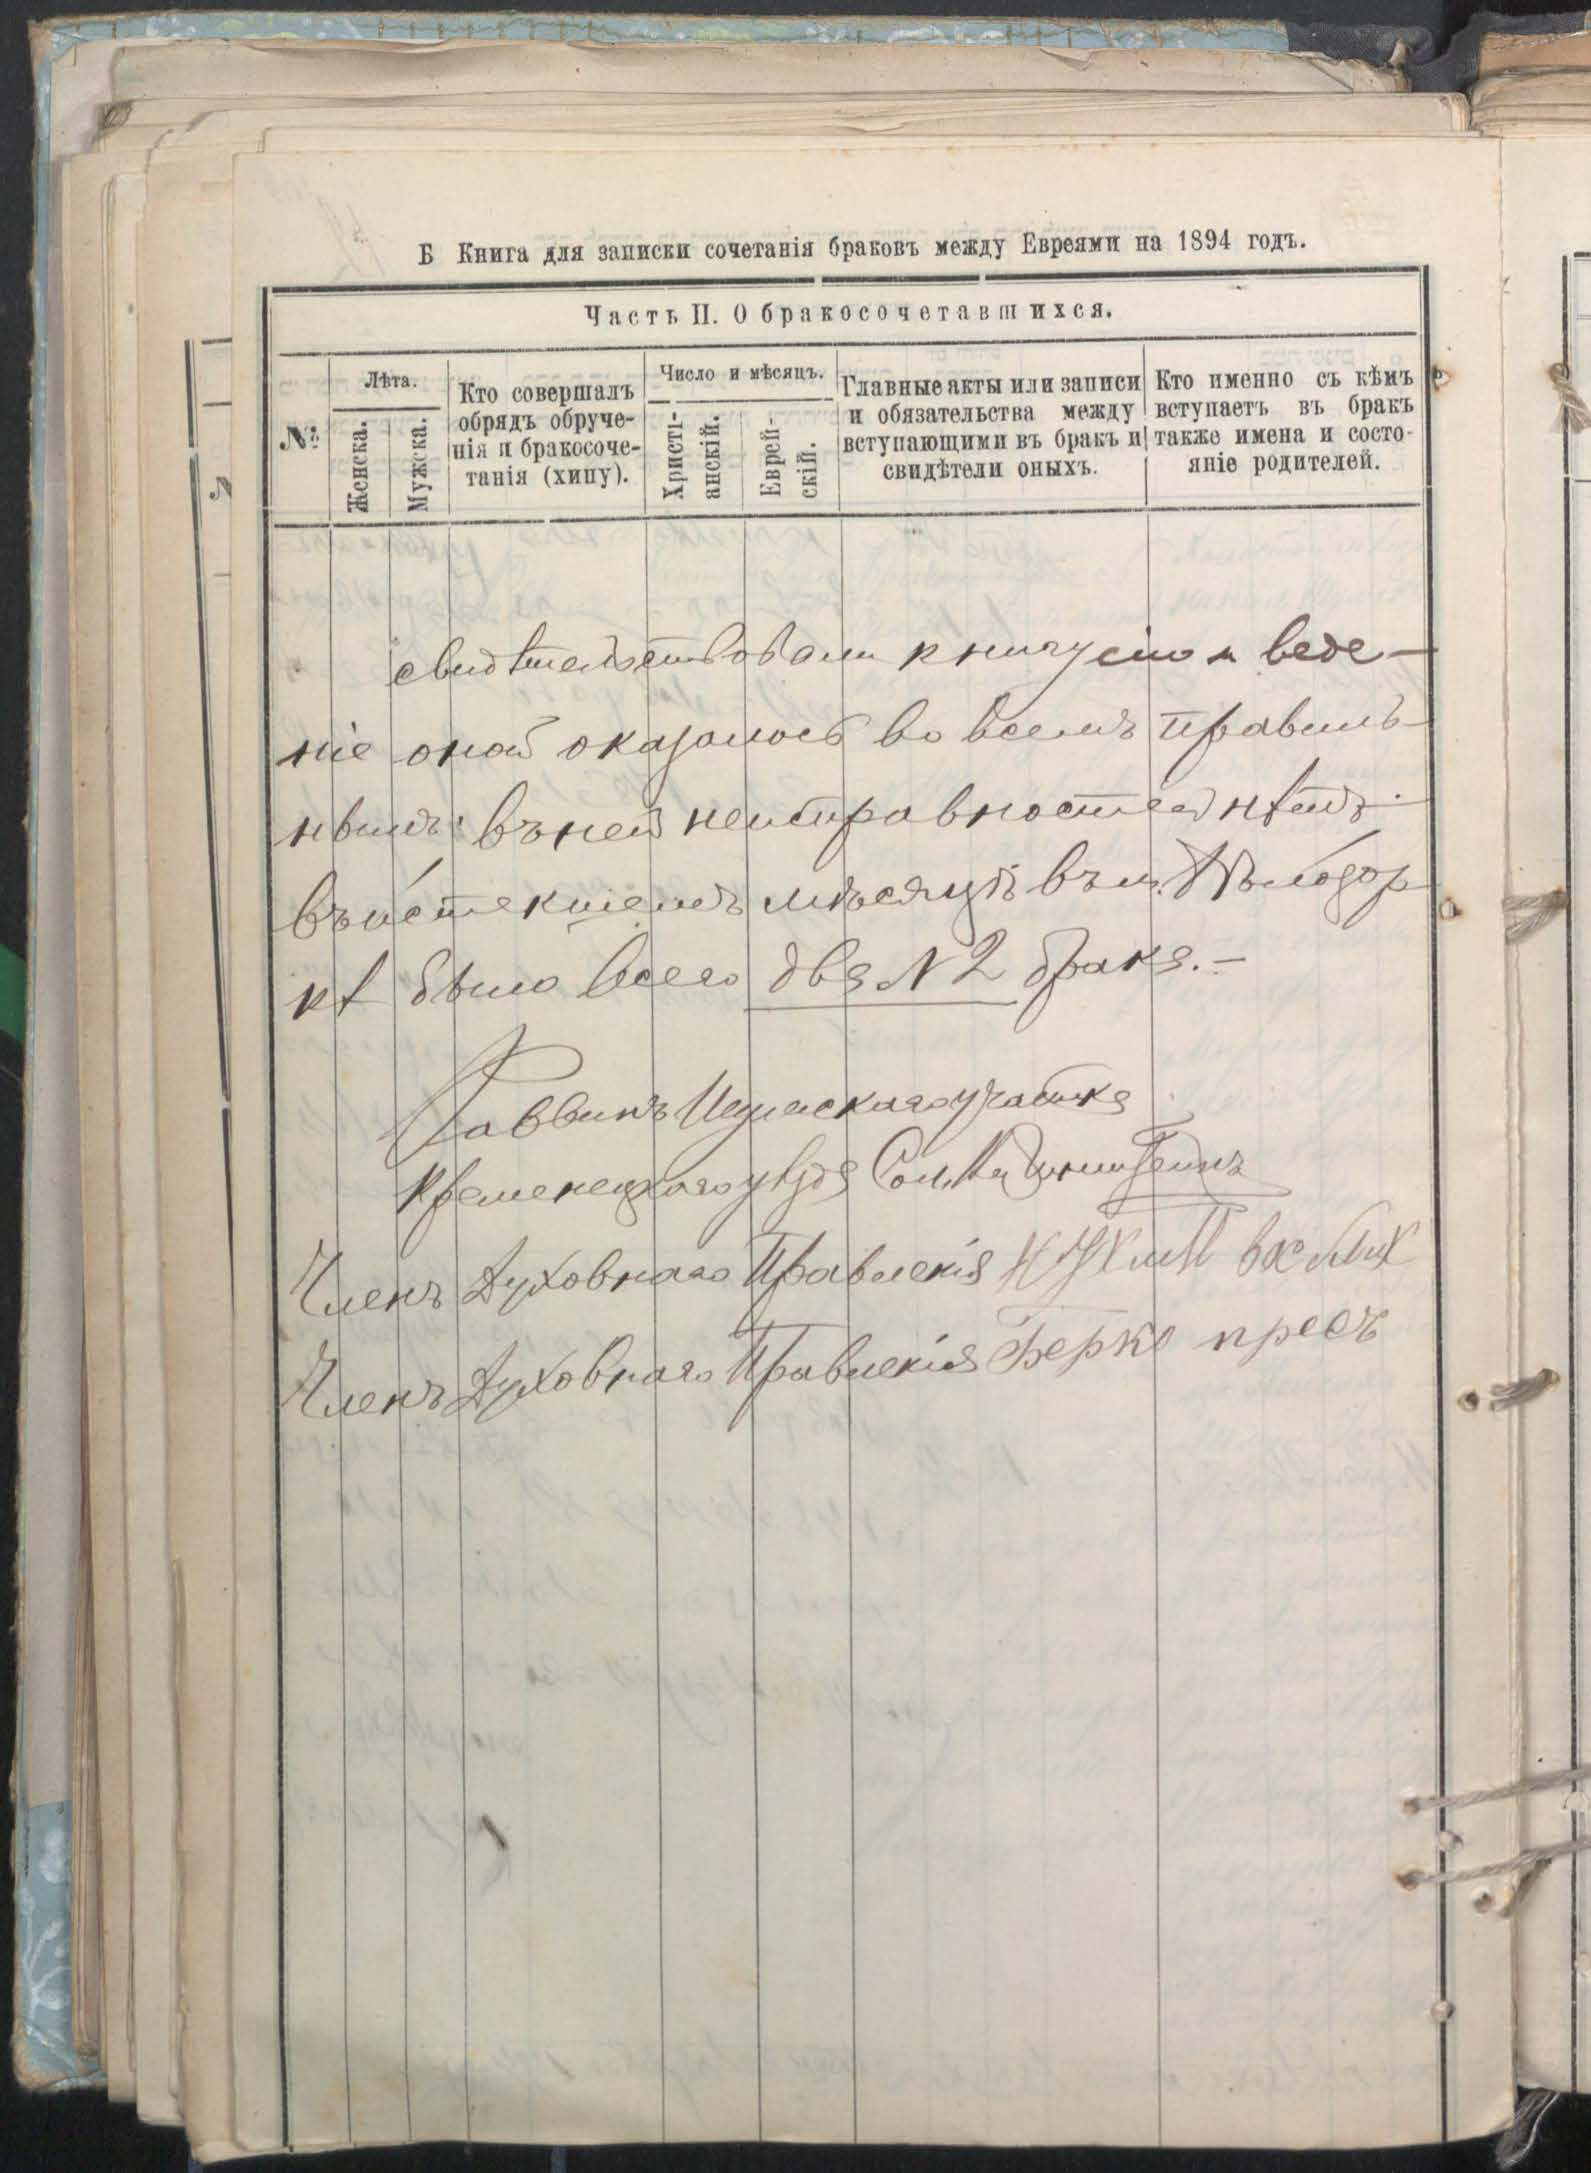 Б Книга для записки сочетанія браковъ между Евреями на 1894 годъ.
Часть II. О бракосочетавшихся.
№
Лѣта.
Женска.
Мужска.
Кто совершалъ
обрядъ обруче-
нія и бракосоче-
танія (хипу).
Число и мѣсяцъ.
Христі-
анскій.
Еврей-
скій.
Главные акты или записи
и обязательства между
вступающими въ бракъ и
свидѣтели оныхъ.
Кто именно съ кѣмъ
вступаетъ въ бракъ
также имена и состо-
яніе родителей.
свидѣтельствовали книгу сію и веде-
ніе оной оказалось во всемъ правиль-
нымъ: въ ней неисправностей нѣтъ.
въ истекшемъ мѣсяцѣ въ м.
кѣ было всего два № 2 брака.-
Раввинъ участка
Кременецкого уѣзда
Членъ Духовнаго Правленія
Членъ Духовнаго Правленія Берко пресъ